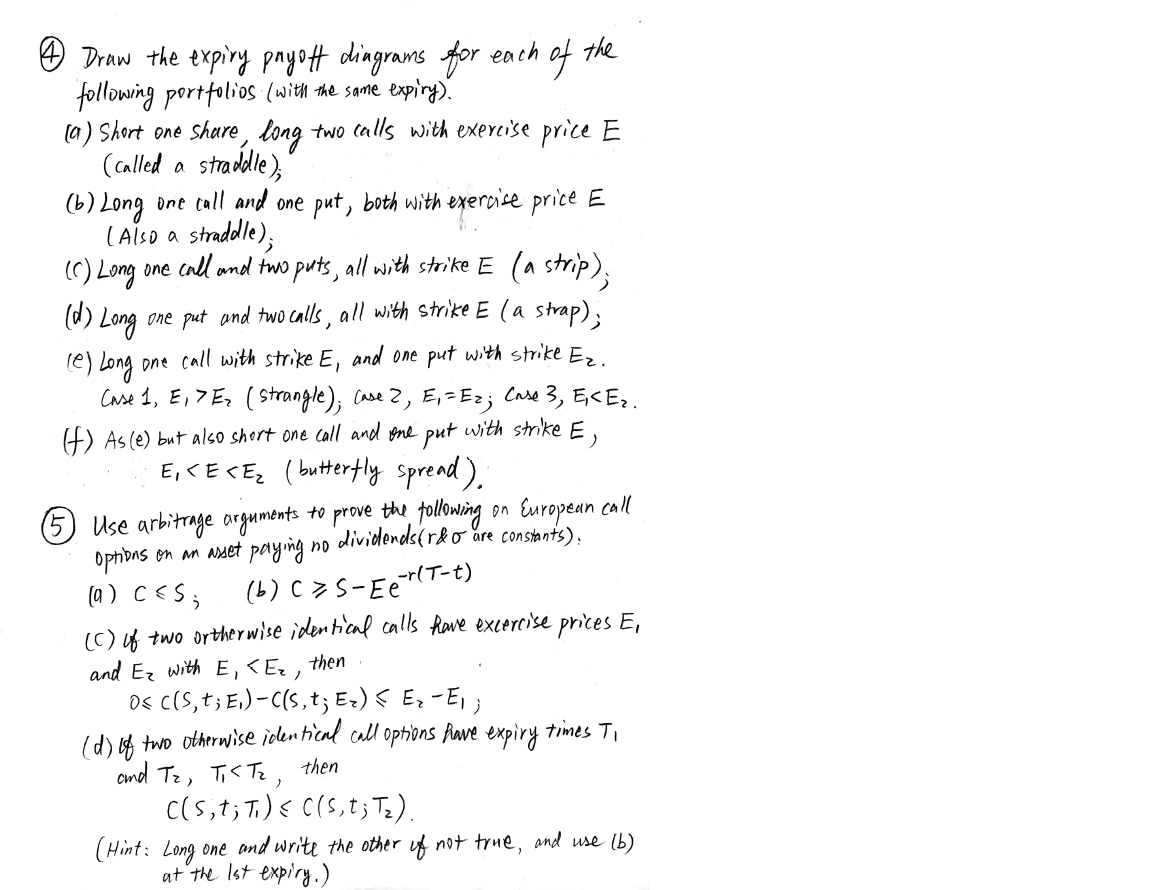 ④ Draw the expiry payoff diagrams for each of the
following portfolios (with the same expiry).
(a) Short one share, long two calls with exercise price E
(called a straddle);
(b) Long one call and one put, both with exercise price E
(Also a straddle);
(c) Long one call and two puts, all with strike E (a strip);
(d) Long one put and two calls, all with strike E (a strap);
(e) Long one call with strike E₁ and one put with strike E₂.
Case 1, E₁ > E₂ (strangle); Case 2, E₁ = E₂; Case 3, E₁ < E₂.
(f) As (e) but also short one call and one put with strike E,
E₁ < E < E₂ (butterfly spread).
⑤ Use arbitrage arguments to prove the following on European call
options on an asset paying no dividends (r & σ are constants).
(a) C ≤ S; (b) C ⩾ S - Ee^{-r(T-t)}
(c) If two ortherwise identical calls have excercise prices E₁
and E₂ with E₁ < E₂, then
0 ≤ C(S,t;E₁) - C(S,t;E₂) ≤ E₂ - E₁;
(d) If two otherwise identical call options have expiry times T₁
and T₂, T₁ < T₂, then
C(S,t;T₁) ≤ C(S,t;T₂).
(Hint: Long one and write the other if not true, and use (b)
at the 1st expiry.)